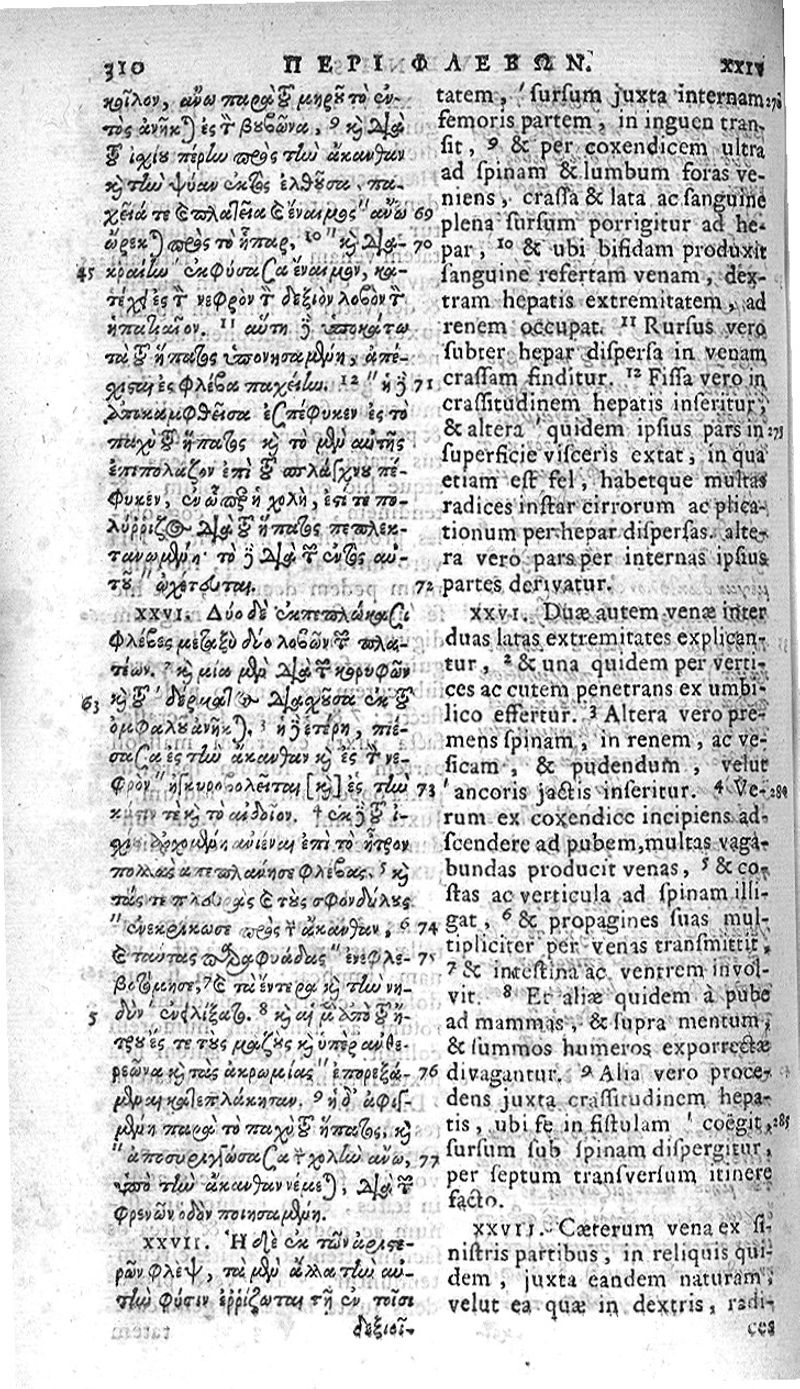 310 ΠΕΡΙ ΦΛΕΒΩΝ. XXIV
κοῖλον, ἄνω παρὰ τοῦ μηροῦ τὸ ἐν-
τὸς ἀνήκει ἐς τὸν βουβῶνα, 9 καὶ διὰ
τοῦ ἰσχίου πέρην πρὸς τὴν ἄκανθαν
καὶ τὴν ψύαν ἐκτὸς ἐλθοῦσα, πα-
χεῖά τε καὶ πλατεῖα καὶ ἔναιμος" ἄνω 69
ὤρεκται πρὸς τὸ ἧπαρ, 10 " καὶ δια- 70
45 κραίην ἐκφύσασα ἔναιμον, κα-
τέχει ἐς τὸν νεφρὸν τὸν δεξιὸν λοβὸν τοῦ
ἡπατιαίου. 11 αὕτη δὲ ὑποκάτω
τὰ τοῦ ἥπατος ὑπονησαμένη, ἀπέ-
σχισται ἐς φλέβα παχείην. 12 " ἡ δὲ 71
ἀποκαμφθεῖσα ἐσπέφυκεν ἐς τὸ
παχὺ τοῦ ἥπατος καὶ τὸ μὲν αὐτῆς
ἐπιπολάζον ἐπὶ τοῦ σπλάγχνου πέ-
φυκεν, ἐν ᾧπερ ἡ χολὴ, ἐστί τε πο-
λύρριζος διὰ τοῦ ἥπατος πεπλεκ-
τανωμένη· τὸ δὲ διὰ τοῦ ἐντὸς αὐ-
τοῦ " ὠχέτευται. 72
XXVI. Δύο δὲ ἐκπεπλώκασι
φλέβες μεταξὺ δύο λοβῶν τῶν πλα-
τέων. 2 καὶ μία μὲν διὰ τῶν κορυφῶν
63 καὶ τοῦ δέρματος διαχοῦσα ἐκ τοῦ
ὀμφαλοῦ ἀνήκει. 3 ἡ δὲ ἑτέρη, πιέ-
σασα ἐς τὴν ἄκανθαν καὶ ἐς τὸν νε-
φρὸν " ἠσκυροβολεῖται [καὶ] ἐς τὴν 73
κύστιν τε καὶ τὸ αἰδοῖον. 4 ἐκ δὲ τοῦ ἰ-
σχίου ἀρχομένη ἀνιέναι ἐπὶ τὸ ἦτρον
πολλὰς ἀπεπλάνησε φλέβας. 5 καὶ
τάς τε πλευρὰς καὶ τοὺς σφονδύλους
" ἐνεκρίκωσε πρὸς τὴν ἄκανθαν, 6 74
καὶ ταύτας παραφυάδας " ἐνεφλε- 75
βοτόμησε, 7 καὶ τὰ ἔντερα καὶ τὴν νη-
5 δὺν ἐνείλίξατο. 8 καὶ αἱ μὲν ἀπὸ τοῦ ἤ-
τρου ἔς τε τοὺς μαζοὺς καὶ ὑπὲρ ἀνθε-
ρεῶνα καὶ τὰς ἀκρωμίας " ἐπορεξά- 76
μεναι κατεπλάκηταν. 9 ἡ δ' ἀφισ-
μένη παρὰ τὸ παχὺ τοῦ ἥπατος, καὶ
" ἀπεσυριγγώσασα τὴν χολὴν ἄνω, 77
ὑπὸ τὴν ἄκανθαν νέμεται, διὰ τῶν
φρενῶν ὁδὸν ποιησαμένη.
XXVII. Ἡ δὲ ἐκ τῶν ἀριστε-
ρῶν φλὲψ, τὰ μὲν ἄλλα τὴν αὐ-
τὴν φύσιν ἐρρίζωται τῇ ἐν τοῖσι
δεξιοῖ-
tatem, ' sursum juxta internam 278
femoris partem, in inguen tran-
sit, 9 & per coxendicem ultra
ad spinam & lumbum foras ve-
niens, crassa & lata ac sanguine
plena sursum porrigitur ad he-
par, 10 & ubi bifidam produxit
sanguine refertam venam, dex-
tram hepatis extremitatem, ad
renem occupat. 11 Rursus vero
subter hepar dispersa in venam
crassam finditur. 12 Fissa vero in
crassitudinem hepatis inseritur,
& altera ' quidem ipsius pars in 279
superficie visceris extat, in qua
etiam est fel, habetque multas
radices instar cirrorum ac plica-
tionum per hepar dispersas. alte-
ra vero pars per internas ipsius
partes derivatur.
XXVI. Duæ autem venæ inter
duas latas extremitates explican-
tur, 2 & una quidem per verti-
ces ac cutem penetrans ex umbi-
lico effertur. 3 Altera vero pre-
mens spinam, in renem, ac ve-
sicam, & pudendum, velut
' ancoris jactis inseritur. 4 Ve- 280
rum ex coxendice incipiens ad-
scendere ad pubem, multas vaga-
bundas producit venas, 5 & co-
stas ac verticula ad spinam illi-
gat, 6 & propagines suas mul-
tipliciter per venas transmittit,
7 & intestina ac ventrem invol-
vit. 8 Et aliæ quidem à pube
ad mammas, & supra mentum,
& summos humeros exporrectæ
divagantur. 9 Alia vero proce-
dens juxta crassitudinem hepa-
tis, ubi se in fistulam ' coëgit, 285
sursum sub spinam dispergitur,
per septum transversum itinere
facto.
XXVII. Cæterum vena ex si-
nistris partibus, in reliquis qui-
dem, juxta eandem naturam,
velut ea quæ in dextris, radi-
ces